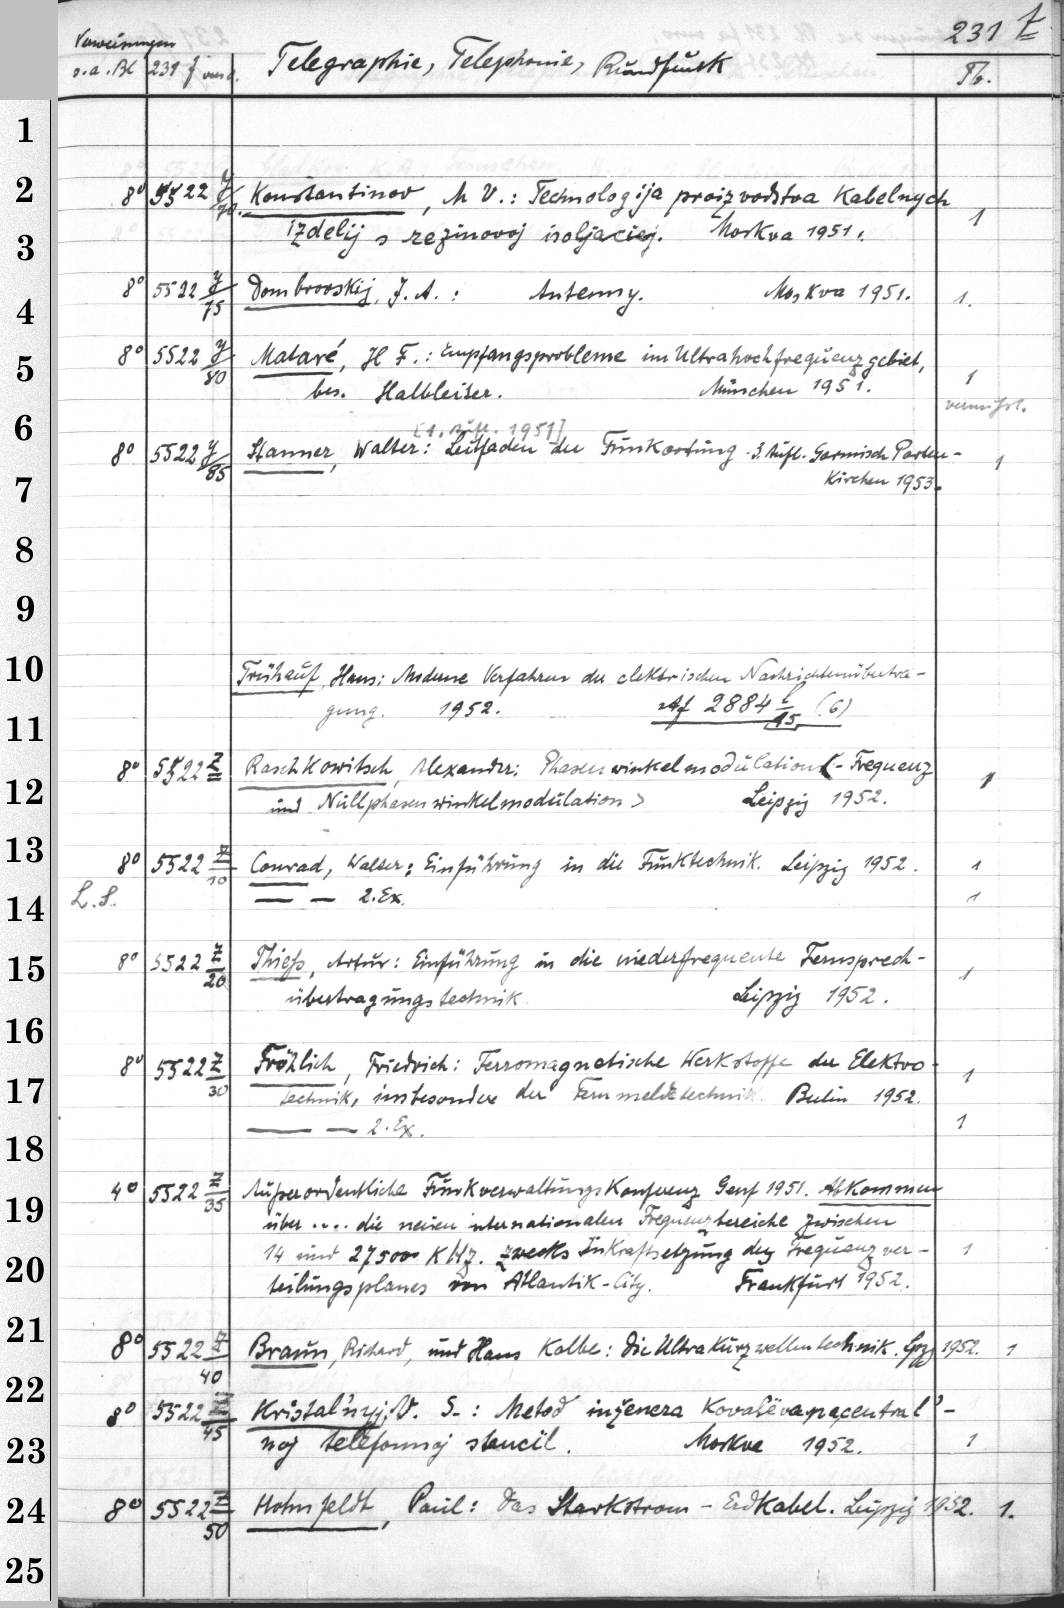 Verweisungen
s.a. Bl 231
Telegraphie, Telephonie, Rundfunk
231 z
1
2
8° 5522 y/70. Konstantinov, M V.: Technologija proizvodstva Kabelnych 1
3
izdelij s rezinovoj isoljaciej. Moskva 1951.
4
8° 5522 y/75 Dombrovskij, J. A.: Antenny. Moskva 1951. 1.
5
8° 5522 y/80 Mataré, H F.: Empfangsprobleme im Ultrahochfrequenzgebiet,
bes. Halbleiter. München 1951. 1
vermißt.
6
[1. Aufl. 1951]
8° 5522 y/85 Stanner, Walter: Leitfaden der Funkortung. 3. Aufl. Garmisch Parten- 1
7
Kirchen 1953.
8
9
10
Frühauf, Hans: Moderne Verfahren der elektrischen Nachrichtenübertra-
gung. 1952. Af 2884 /15 (6)
11
12
8° 5522 z Raschkowitsch, Alexander: Phasenwinkelmodulation (- Frequenz 1
und Nullphasenwinkelmodulation> Leipzig 1952.
13
8° 5522 z/10 Conrad, Walter: Einführung in die Funktechnik. Leipzig 1952. 1
14
L.S. — — 2. Ex. 1
15
8° 5522 z/20 Thieß, Artur: Einführung in die niederfrequente Fernsprech- 1
übertragungstechnik Leipzig 1952.
16
8° 5522 z/30 Fröhlich, Friedrich: Ferromagnetische Werkstoffe der Elektro- 1
17
technik, insbesondere der Fernmeldetechnik. Berlin 1952.
— — 2. Ex. 1
18
4° 5522 z/35 Außerordentliche Funkverwaltungskonferenz Genf 1951. Abkommen
19
über .... die neuen internationalen Frequenzbereiche zwischen
14 und 27500 KHz. zwecks Inkraftsetzung des Frequenzver- 1
20
teilungsplanes von Atlantik-City. Frankfurt 1952.
21
8° 5522 z/40 Braun, Richard, und Hans Kolbe: Die Ultrakurzwellentechnik. 1952. 1
22
8° 5522 z/45 Kristal'nyj, V. S.: Metod inženera Kovalëva na central'-
23
noj telefonnoj stancii. Moskva 1952. 1
24
8° 5522 z/50 Hohnfeldt, Paul: Das Starkstrom-Erdkabel. Leipzig 1952. 1.
25